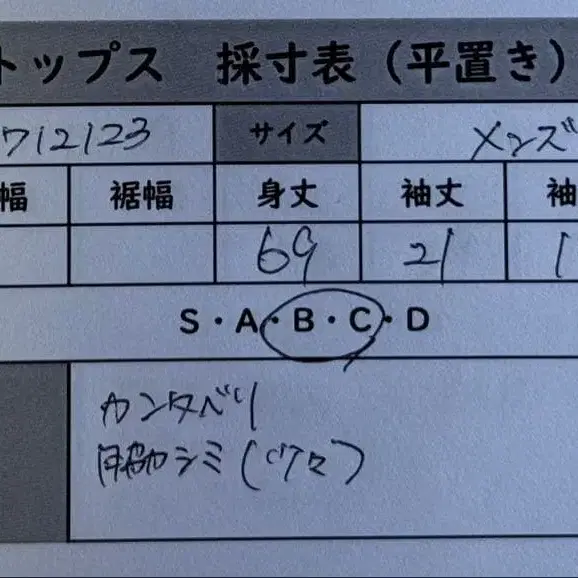 トップス 採寸表（平置き）
712123 サイズ メンズ
幅 裾幅 身丈 袖丈 袖
69 21 1
S・A・B・C・D
カンタベリ
脇シミ（